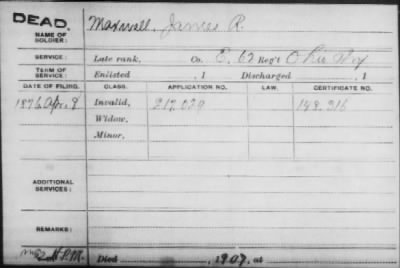 DEAD.
NAME OF SOLDIER: Maxwell, James R.
SERVICE: Late rank, Co. E, 62 Reg't Ohio Inf
TERM OF SERVICE: Enlisted , 1 Discharged , 1
DATE OF FILING. CLASS. APPLICATION NO. LAW. CERTIFICATE NO.
1876 Apr. 8 Invalid, 217,029 148,316
Widow,
Minor,
ADDITIONAL SERVICES:
REMARKS:
Died , 1907, at